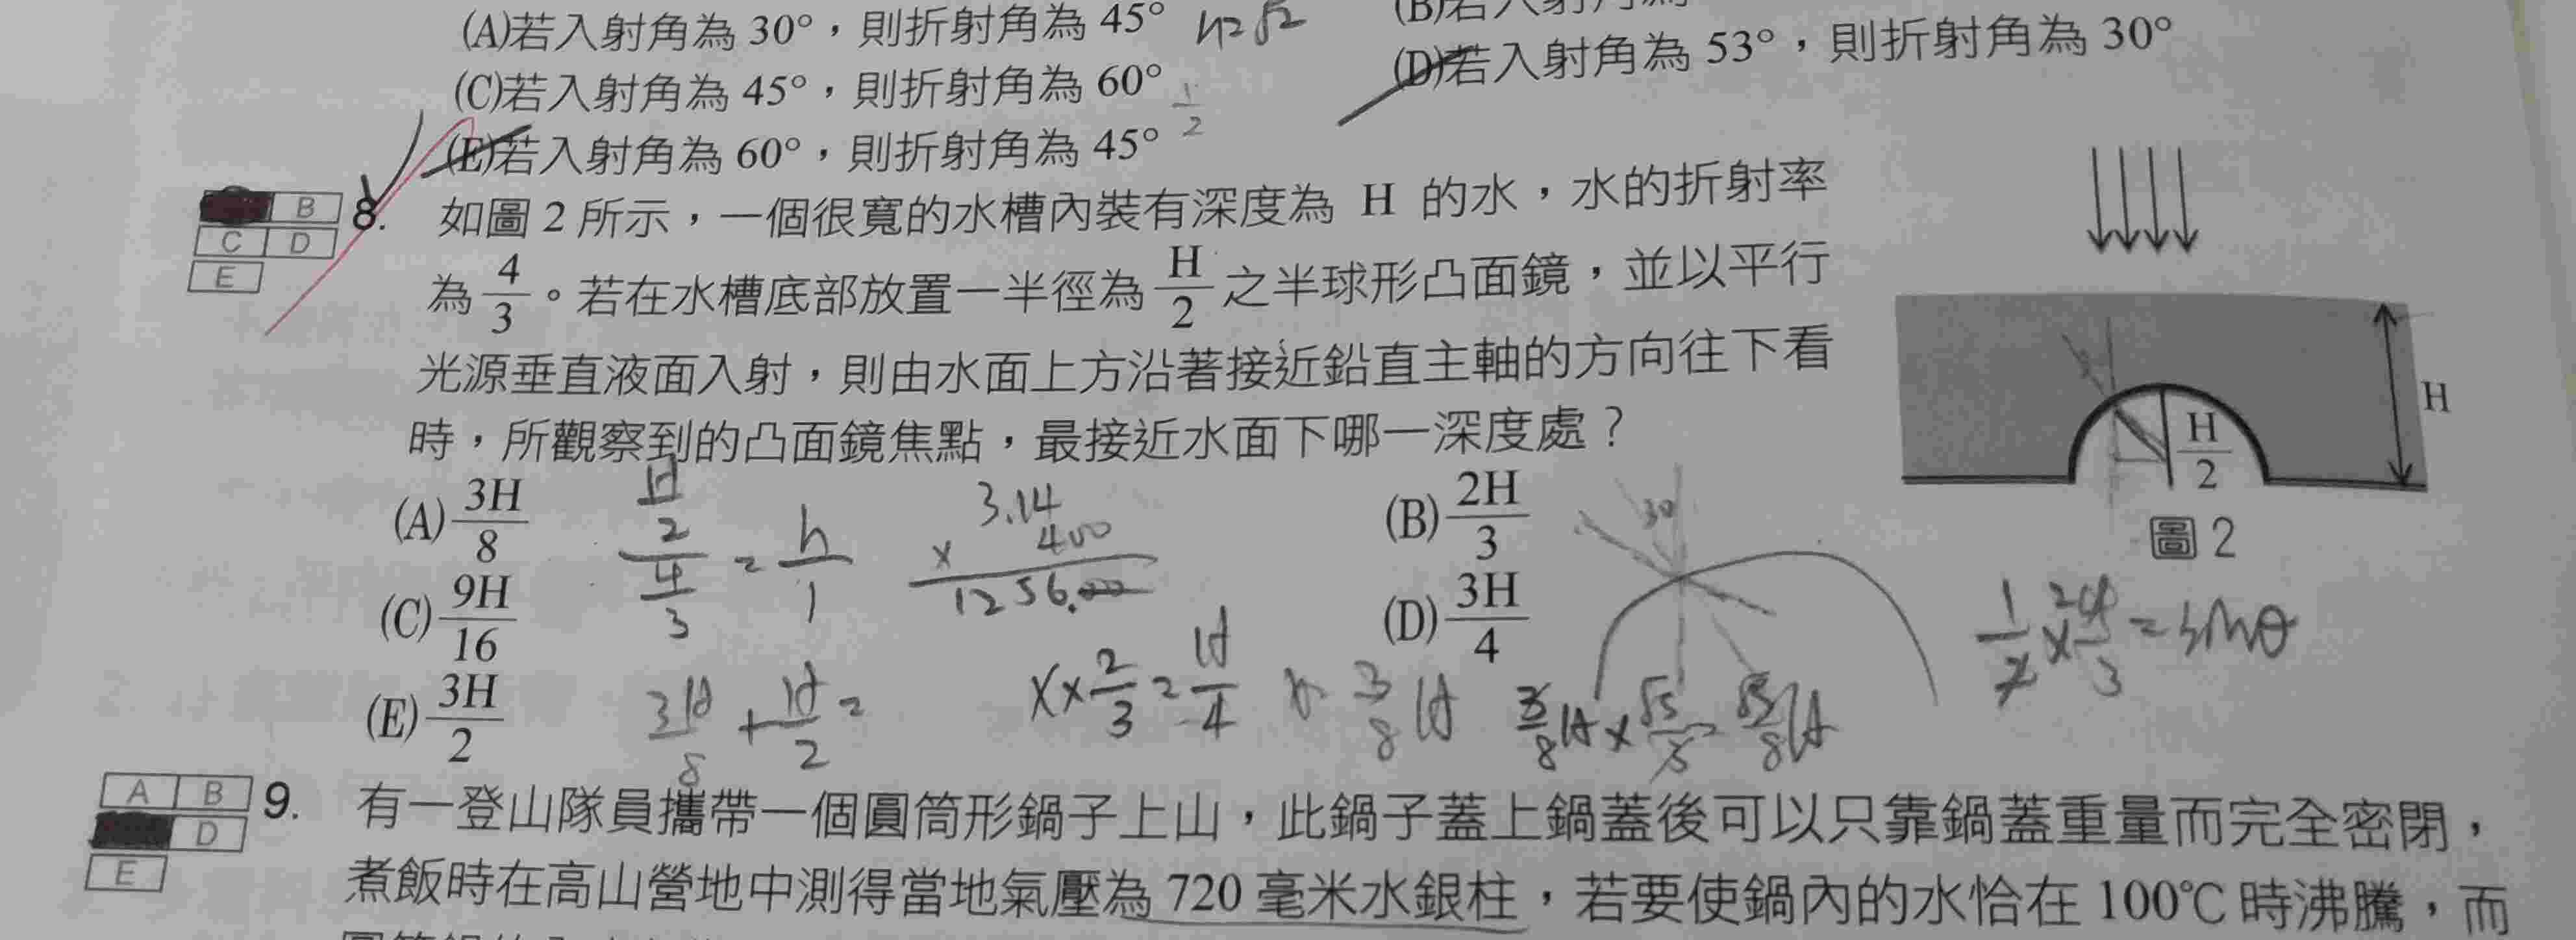 (A)若入射角為 30°，則折射角為 45°
(C)若入射角為 45°，則折射角為 60°
(D)若入射角為 53°，則折射角為 30°
(E)若入射角為 60°，則折射角為 45°
1/2
B
C D
E
8. 如圖 2 所示，一個很寬的水槽內裝有深度為 H 的水，水的折射率
為 4/3。若在水槽底部放置一半徑為 H/2 之半球形凸面鏡，並以平行
光源垂直液面入射，則由水面上方沿著接近鉛直主軸的方向往下看
時，所觀察到的凸面鏡焦點，最接近水面下哪一深度處？
H
H/2
圖 2
(A) 3H/8
(B) 2H/3
(C) 9H/16
(D) 3H/4
(E) 3H/2
H/2 / 4/3 = h/1
3.14
× 400
1256.00
30
3H/8 + H/2 =
X × 2/3 = H/4
3/8 H
= sinθ
A B
D
E
9. 有一登山隊員攜帶一個圓筒形鍋子上山，此鍋子蓋上鍋蓋後可以只靠鍋蓋重量而完全密閉，
煮飯時在高山營地中測得當地氣壓為 720 毫米水銀柱，若要使鍋內的水恰在 100℃ 時沸騰，而